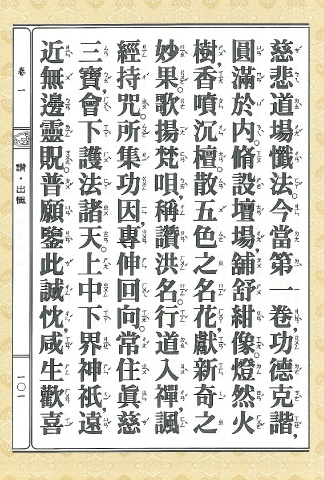 慈悲道場懺法。今當第一卷，功德克諧，
圓滿於內。脩設壇場，舖舒紺像。燈然火
樹，香噴沉檀。散五色之名花，獻新奇之
妙果。歌揚梵唄，稱讚洪名。行道入禪，諷
經持咒。所集功因，專伸回向。常住眞慈
三寶，會下護法諸天。上中下界神祇，遠
近無邊靈貺。普願鑒此誠忱，咸生歡喜
卷一
讚・出懺
一〇一